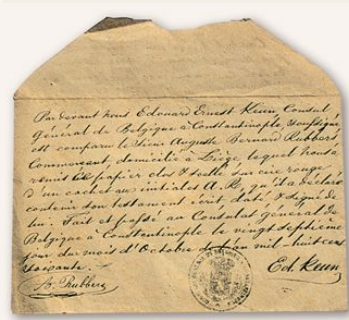 Par devant nous Edouard Ernest Keun Consul
Général de Belgique à Constantinople, soussigné
est comparu le Sieur Auguste Bernard Rubbers
Commercant, domicilié à Liège, lequel nous a
remis ce papier clos & scellé sur cire rouge
d'un cachet aux initiales A. R., qu'il a déclaré
contenir son testament écrit, daté & signé de
lui. Fait et passé au Consulat général de
Belgique à Constantinople le vingt septième
jour du mois d'Octobre de l'an mil-huit cent
soixante.
Ed. Keun
A. Rubbers